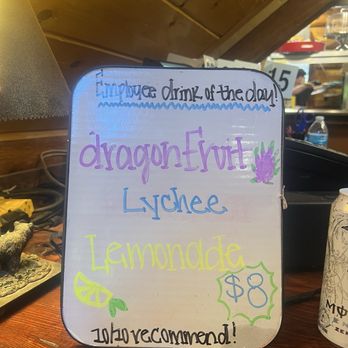 Employee drink of the day!
dragonfruit
Lychee
Lemonade
$8
10/10 recommend!
15